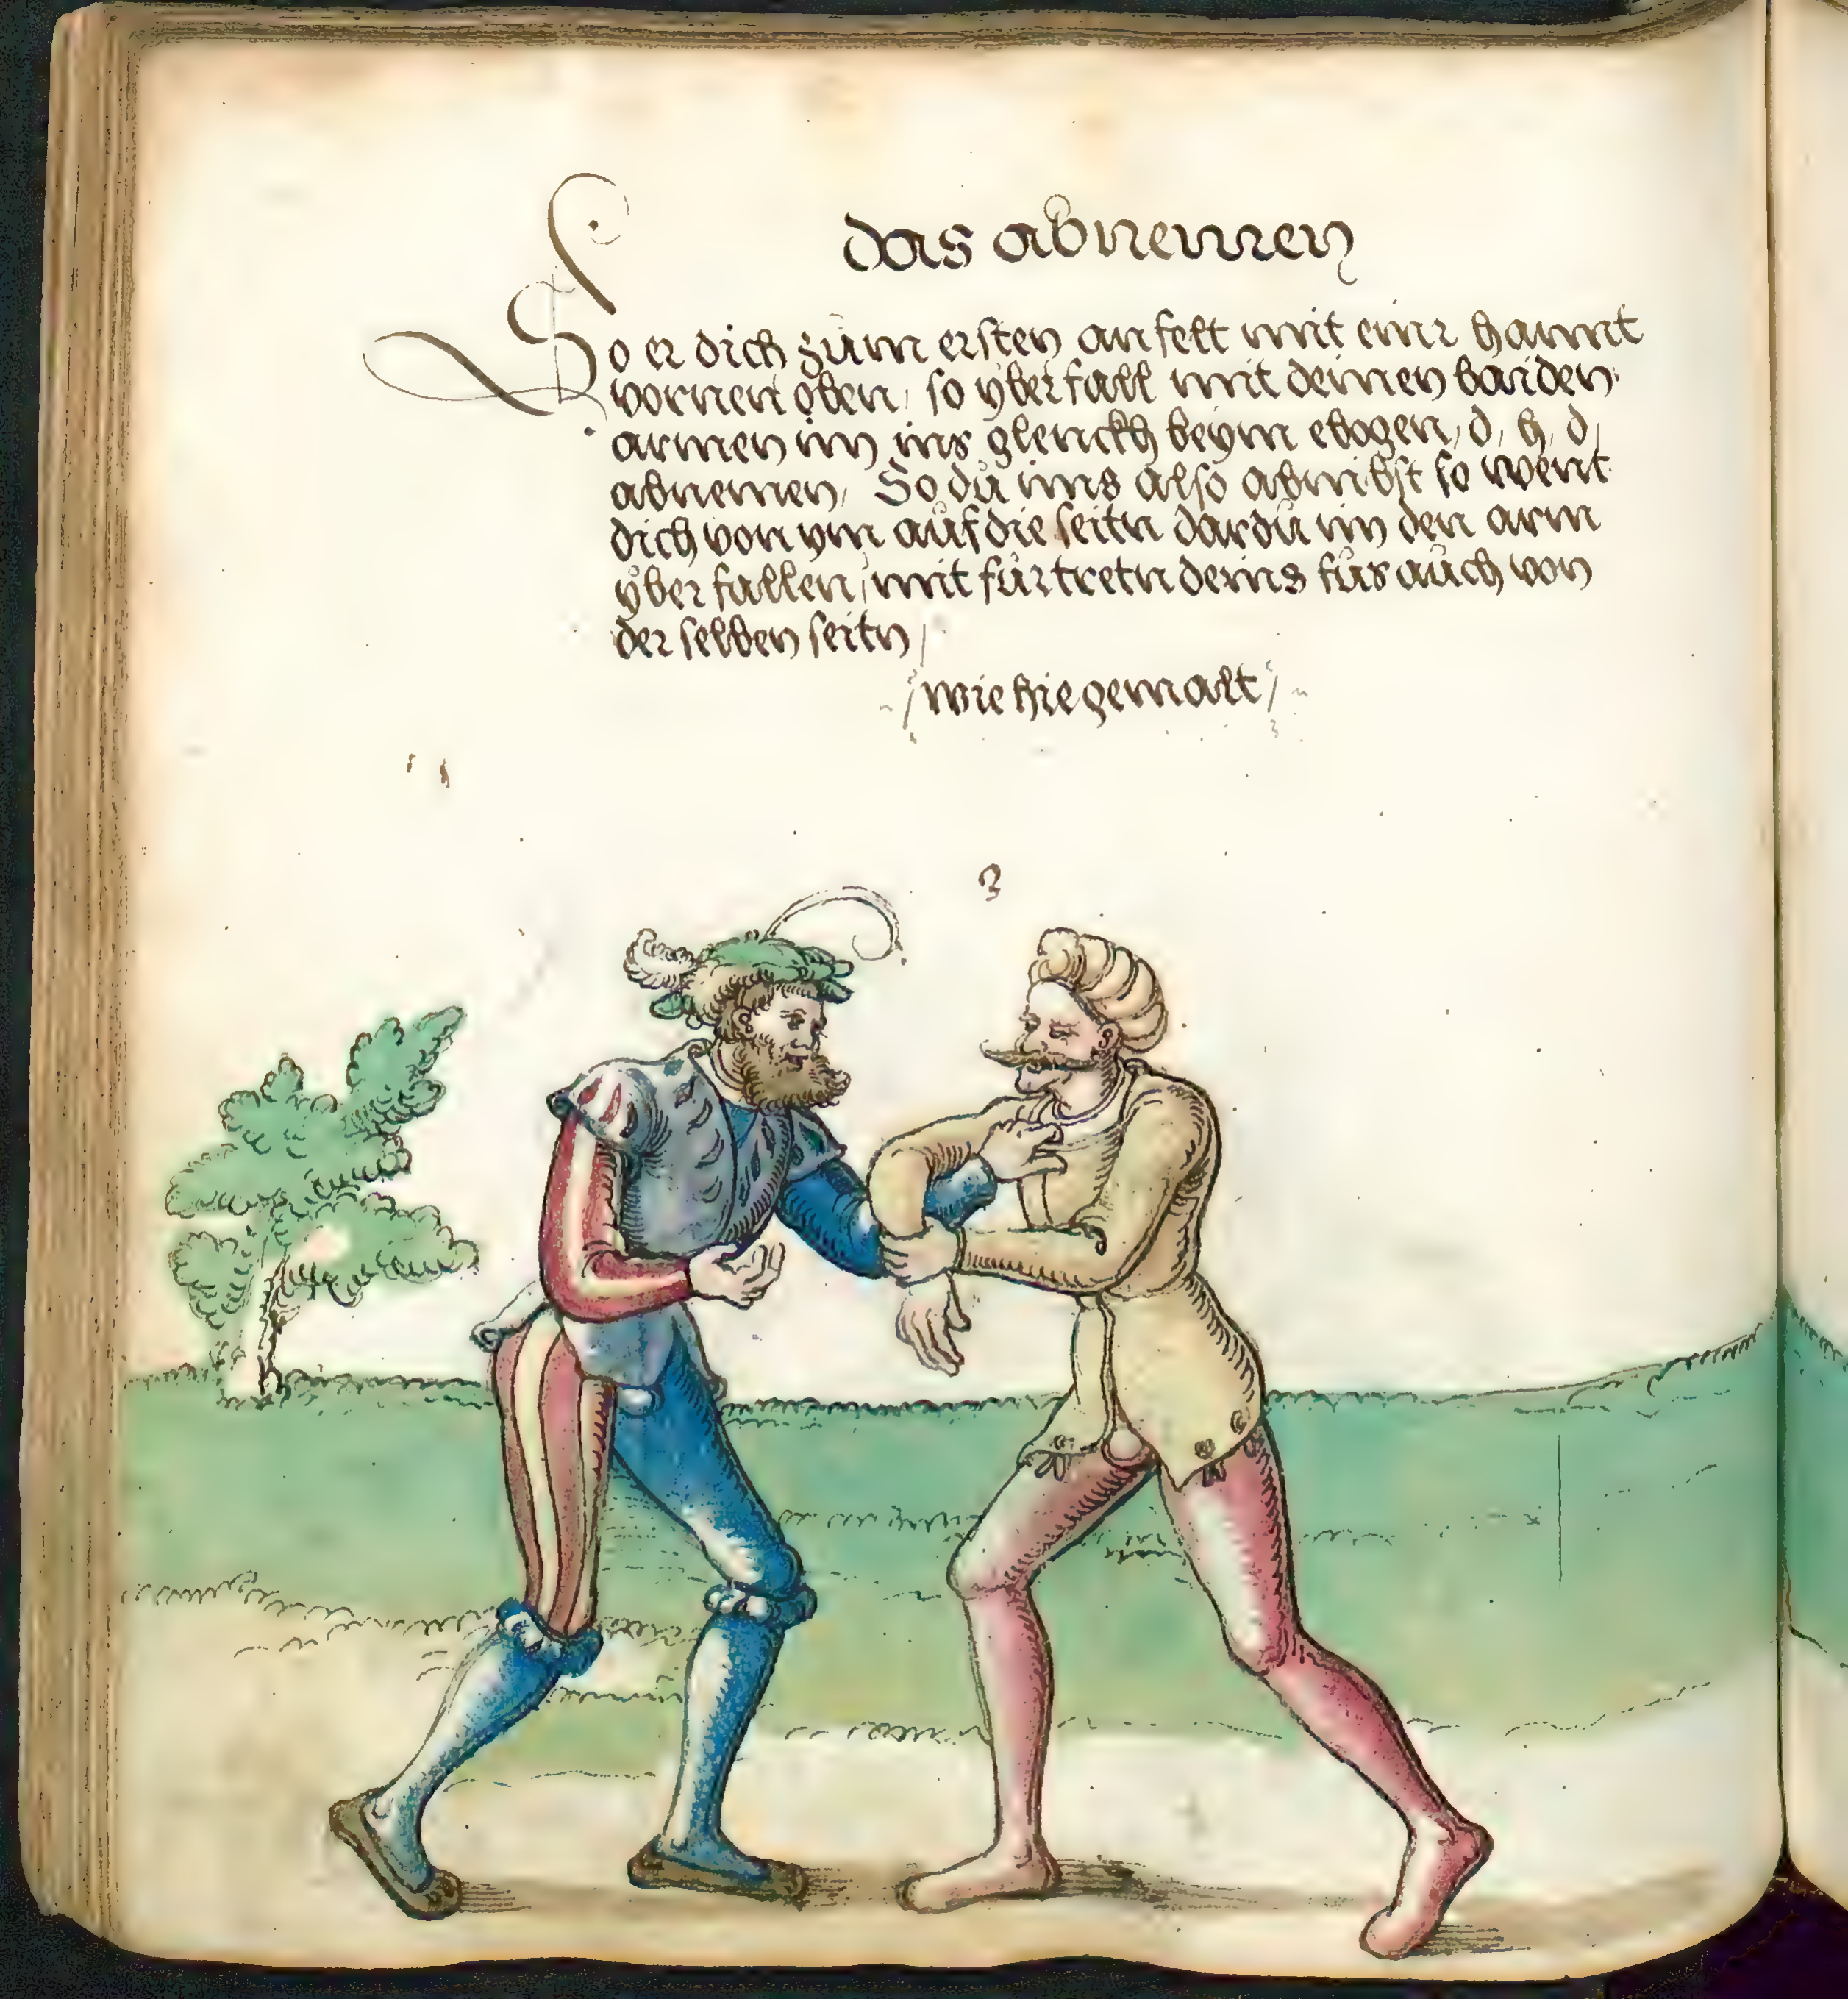 das abnemen
So er dich zům ersten an felt mit einr hannt
vornen oben / so ÿber fall mit deinen baiden
armen im ins glenckh beym ebogen / d / h / d /
abnemen / So dů ims also abnibst so went
dich von ym aůf die seitn dar dů im den arm
ÿber fallen / mit fürtretn deins fůs aůch von
der selben seitn /
/ wie hie gemalt /
3